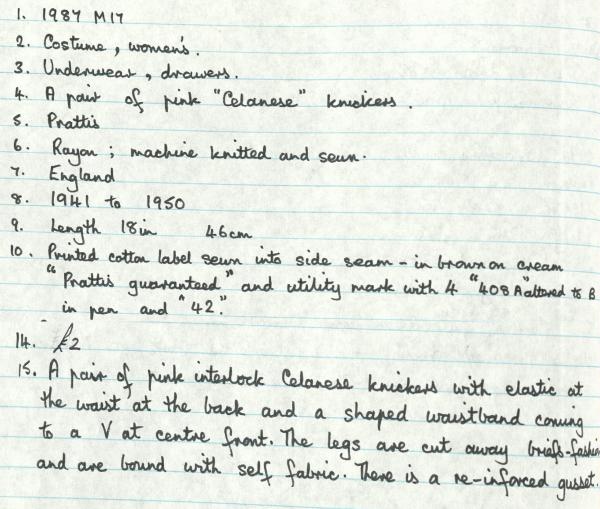 1. 1987 M17
2. Costume, women's.
3. Underwear, drawers.
4. A pair of pink "Celanese" knickers.
5. Prattis
6. Rayon; machine knitted and sewn.
7. England
8. 1941 to 1950
9. Length 18in 46cm
10. Printed cotton label sewn into side seam - in brown on cream
"Prattis guaranteed" and utility mark with 4 "408 A" altered to B
in pen and "42".
14. £2
15. A pair of pink interlock Celanese knickers with elastic at
the waist at the back and a shaped waistband coming
to a V at centre front. The legs are cut away briefs-fashion
and are bound with self fabric. There is a re-inforced gusset.